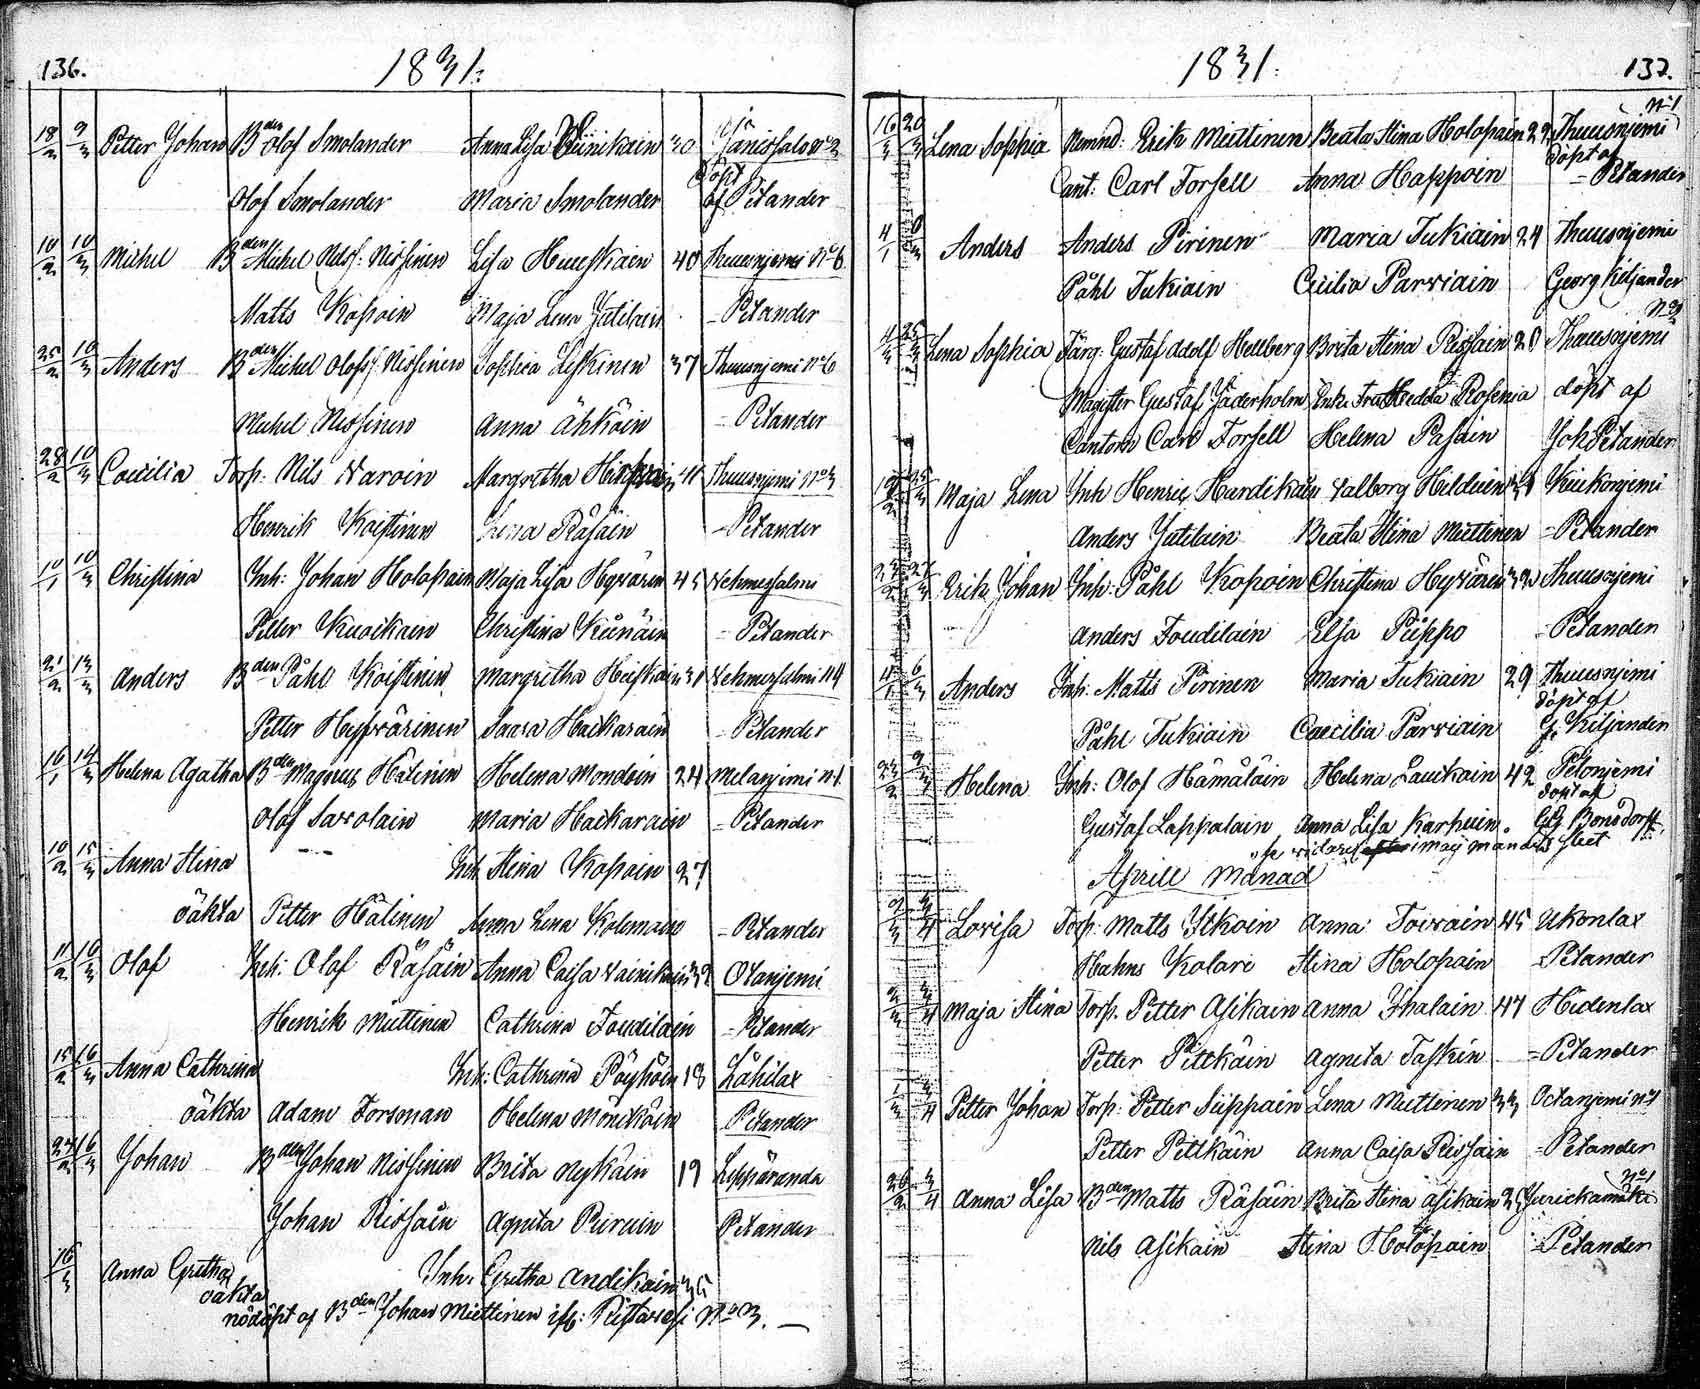 136.
1831.
18/2 9/3 Petter Johan Bden Olof Smolander Anna Lisa 40 Jänissalo No 2
döpt
Olof Smolander Maria Smolander af Petander
10/2 10/3 Michel Bden Michel Nilss: Nissinen Lisa Huuskain 40 Thuusnjemi No 6
Matts Kopoin Maja Lena Jutilain = Petander
25/2 10/3 Anders Bden Michel Olofss: Nissinen Sophia Leskinen 37 Thuusnjemi No 6
Michel Nissinen Anna Ähköin = Petander
28/2 10/3 Caecilia Torp: Nils Varoin Margretha 41 Thuusnjemi No 3
Henrik Koistinen Lena Räsäin = Petander
10/3 Christina Inh: Johan Holopain Maja Lisa Hyvärin 45 Vehmersalmi
Petter Kuoikain Christina Kiinäin = Petander
21/2 13/3 Anders Bden Påhl Koistinen Margretha Heiskain 31 Vehmersalmi N 4
Petter Hyvvärinen Saara Hackarain = Petander
16/1 14/3 Helena Agatha Bden Magnus Hätinen Helena Mondein 24 Melanjemi N 1
Olof Savolain Maria Hackarain = Petander
10/2 15/3 Anna Stina Inh: Stina Kopoin 27
oäkta Petter Hätinen Anna Lena Kolemain = Petander
11/2 16/3 Olof Inh: Olof Räsäin Anna Caisa Vainikain 32 Otanjemi
Henrik Miettinen Cathrina Toudilain = Petander
15/2 16/3 Anna Cathrina Inh: Cathrina Pöyhöin 18 Lähilax
oäkta Adam Forsman Helena Mönikäin Petander
16/3 Johan Bden Johan Nissinen Brita Nykäin 19 Leppäranda
Johan Rissain Agnita Piruin Petander
16/3 Anna Gretha Inh: Gretha Andikain 35
oäkta
nöddöpt af Bden Johan Miettinen No 3.
1831.
137.
No 1
16/3 20/3 Lena Sophia Nemnd: Erik Miettinen Beata Stina Holopain 22 Thuusnjemi
döpt af
Cant: Carl Forsell Anna Happoin = Petander
Anders Anders Pirinen Maria Tukiain 24 Thuusnjemi
Påhl Tukiain Cicilia Parviain Georg Kiljander
25/3 Lena Sophia Färg: Gustaf Adolf Hellberg Brita Stina Rissain 28 Thuusnjemi
Magister Gustaf Jäderholm Enke Fru Hedda Rosenia döpt af
Cantorn Carl Forsell Helena Pasain Joh Petander
25/3 Maja Lena Inh Henric Hardikain Valborg Hilduin Kiukonjemi
Anders Jutilain Beata Stina Miettinen = Petander
27/3 Erik Johan Inh: Påhl Kopoin Christina Hyvären 32 Thuusnjemi
Anders Toudilain Elsa Piippo = Petander
Anders Inh: Matts Pirinen Maria Tukiain 29 Thuusnjemi
döpt af
Påhl Tukiain Caecilia Parviain G. Kiljander
Helena Inh: Olof Hämäläin Helena Lauikain 42 Petonjemi
döpt af
Gustaf Lappalain Anna Lisa Karhuin. GG Bonsdorff.
se vidare i maij månads slut
Aprill Månad
3/4 Lovisa Torp: Matts Itkoin Anna Toivain 45 Ukonlax
Hahns Kolari Stina Holopain = Petander
3/4 Maja Stina Torp: Petter Asikain Anna Ihalain 47 Hidenlax
Petter Pitkäin Agneta Taskin = Petander
1/3 3/4 Petter Johan Torp: Petter Siippain Lena Miettinen 33 Octanjemi No 1
Petter Pittkäin Anna Caisa Rissain = Petander
No 1
26/2 3/4 Anna Lisa Bden Matts Räsäin Brita Stina Asikain Juurickamäki
Nils Asikain Stina Holopain = Petander